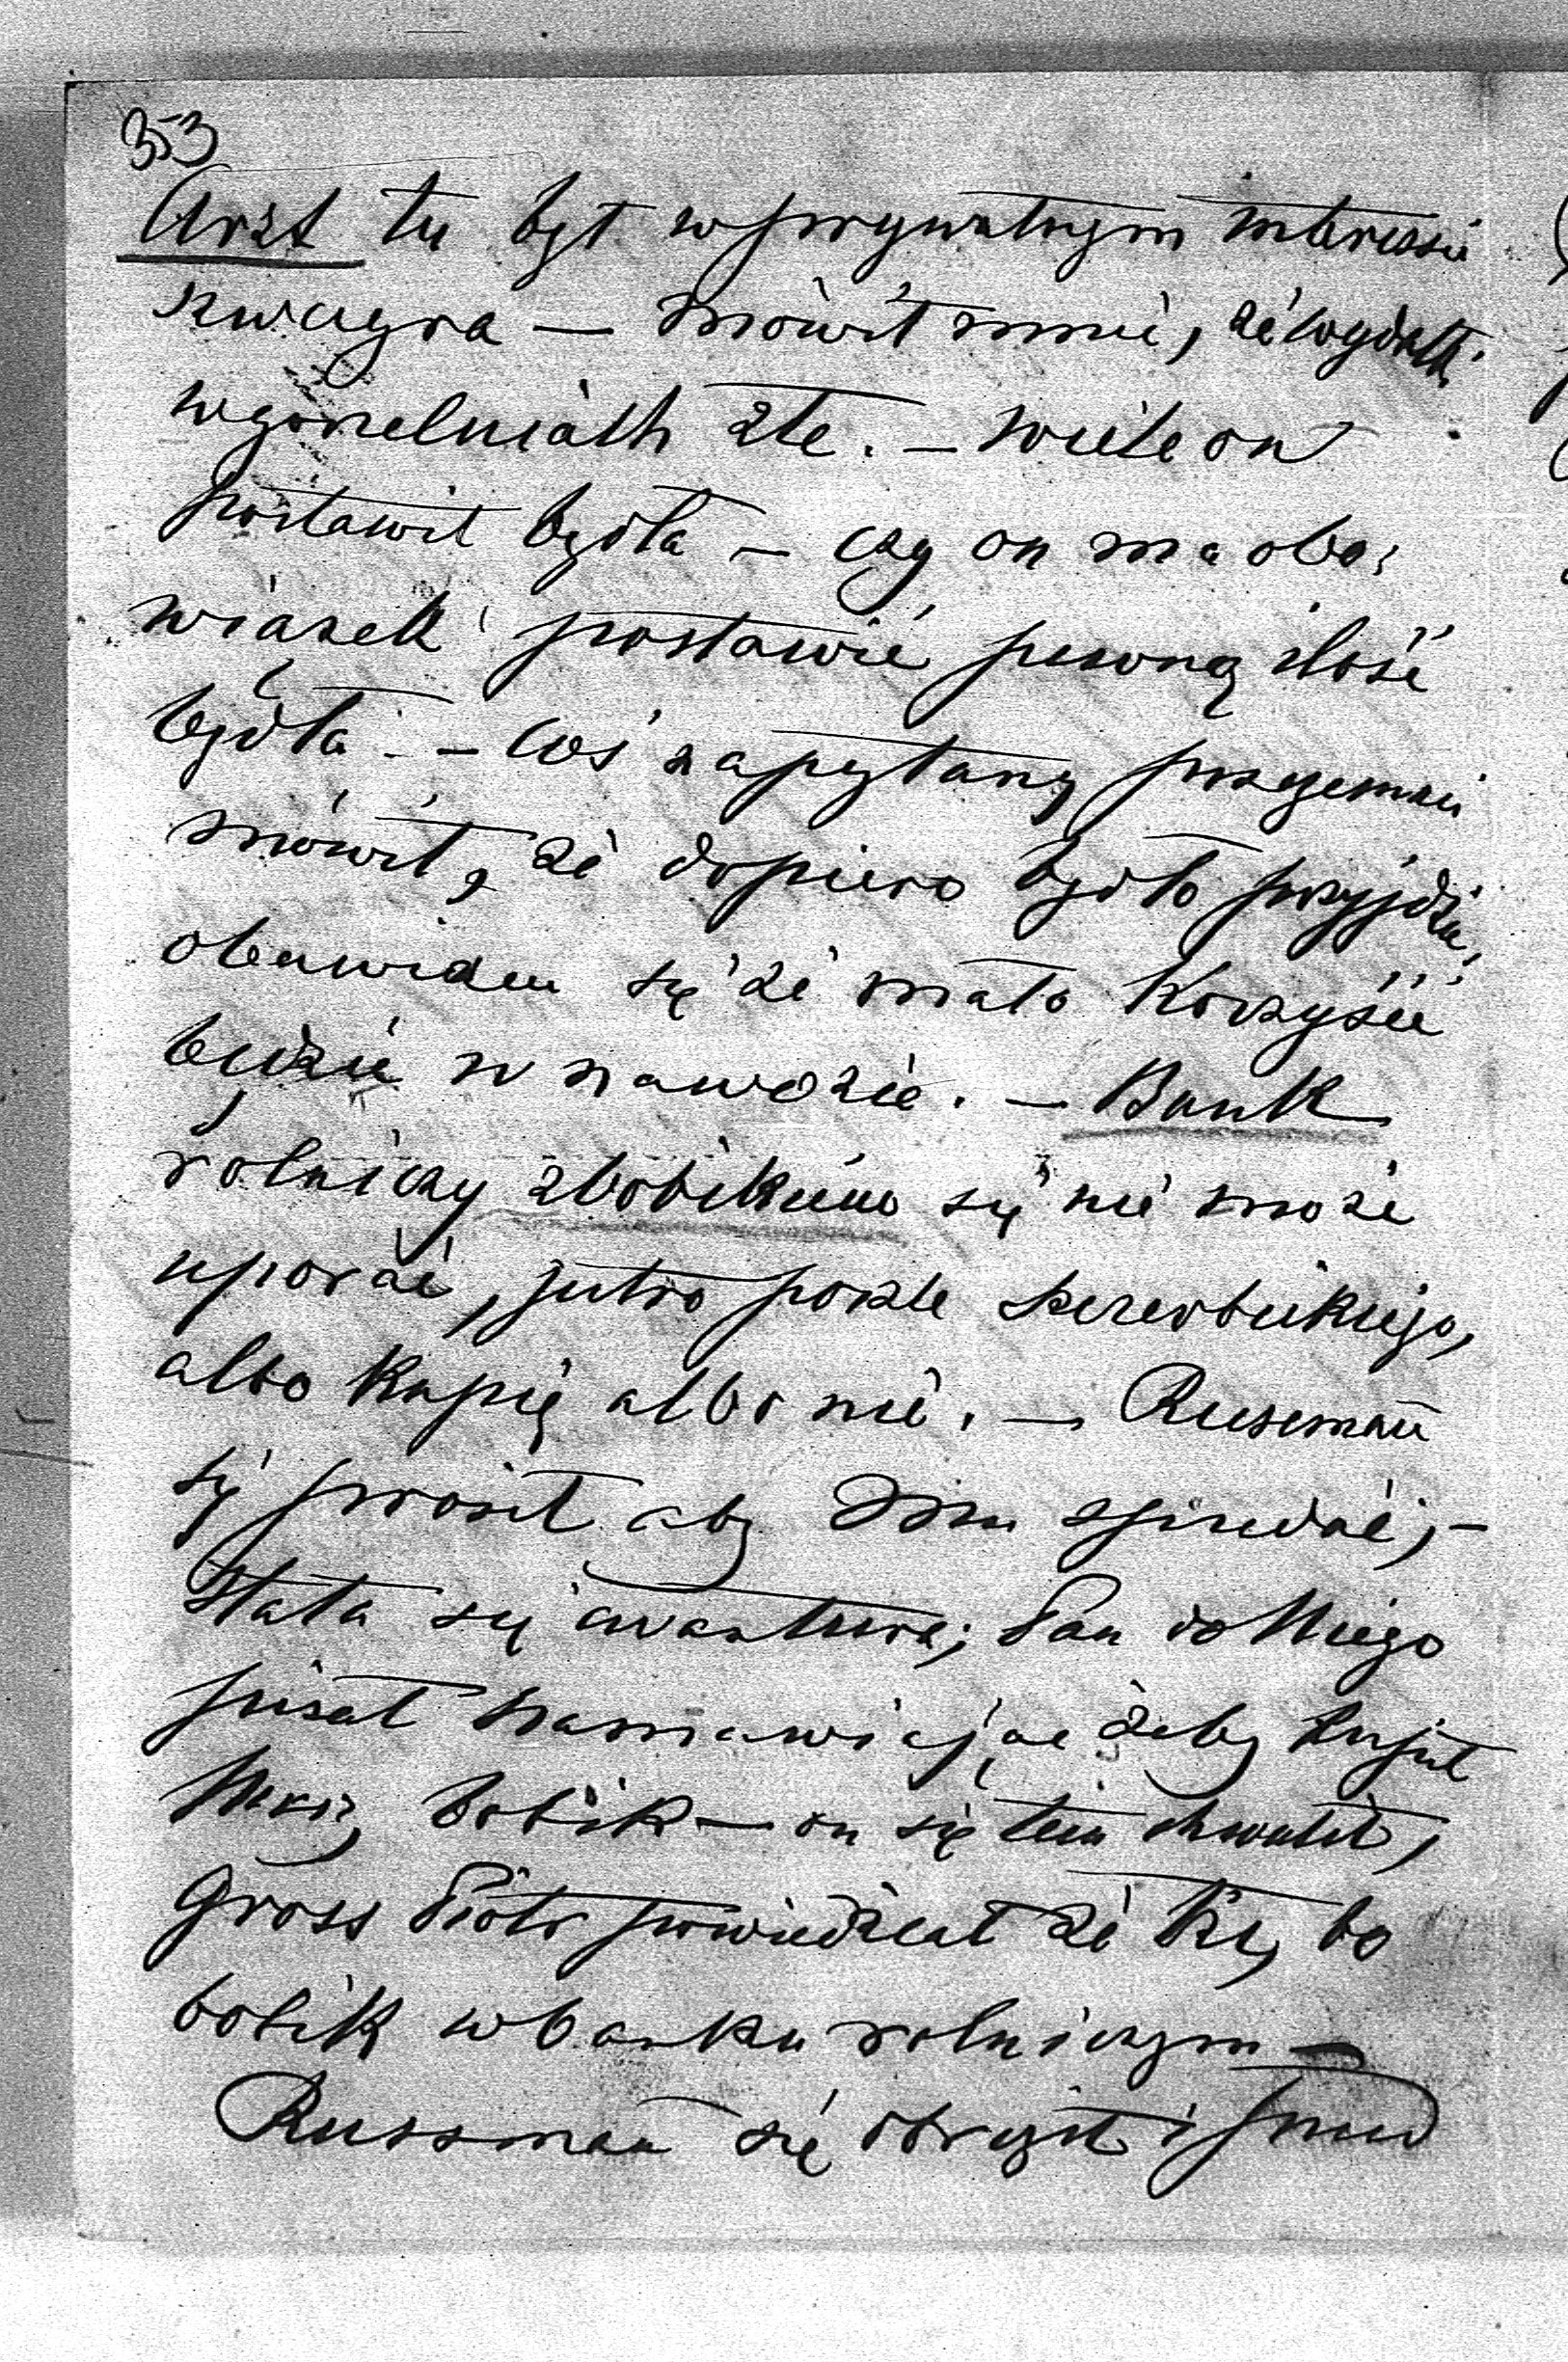 353
Arzt tu był w prywatnym interessie
szwagra — mówił mnie, że wydatki
w gorzelniach złe. — wiele on
postawił bydła — czy on ma obo-
wiązek postawić pewną ilość
bydła — coś zapytany przezemnie
mówił, że dopiero bydło przyjdzie,
obawiam się że mało korzyści
będzie w nawozie. — Bank
rolniczy z bobikiem się nie może
uporać, jutro poszle
albo kupię albo nie. —
się prosił aby Jmu sprzedać, —
Stała się awantura; Pan do Niego
pisał namawiając żeby kupił
bobik — on się tem chwalił,
Gross Piotr powiedział że to
bobik w banku rolniczym —
Russman się obraził i